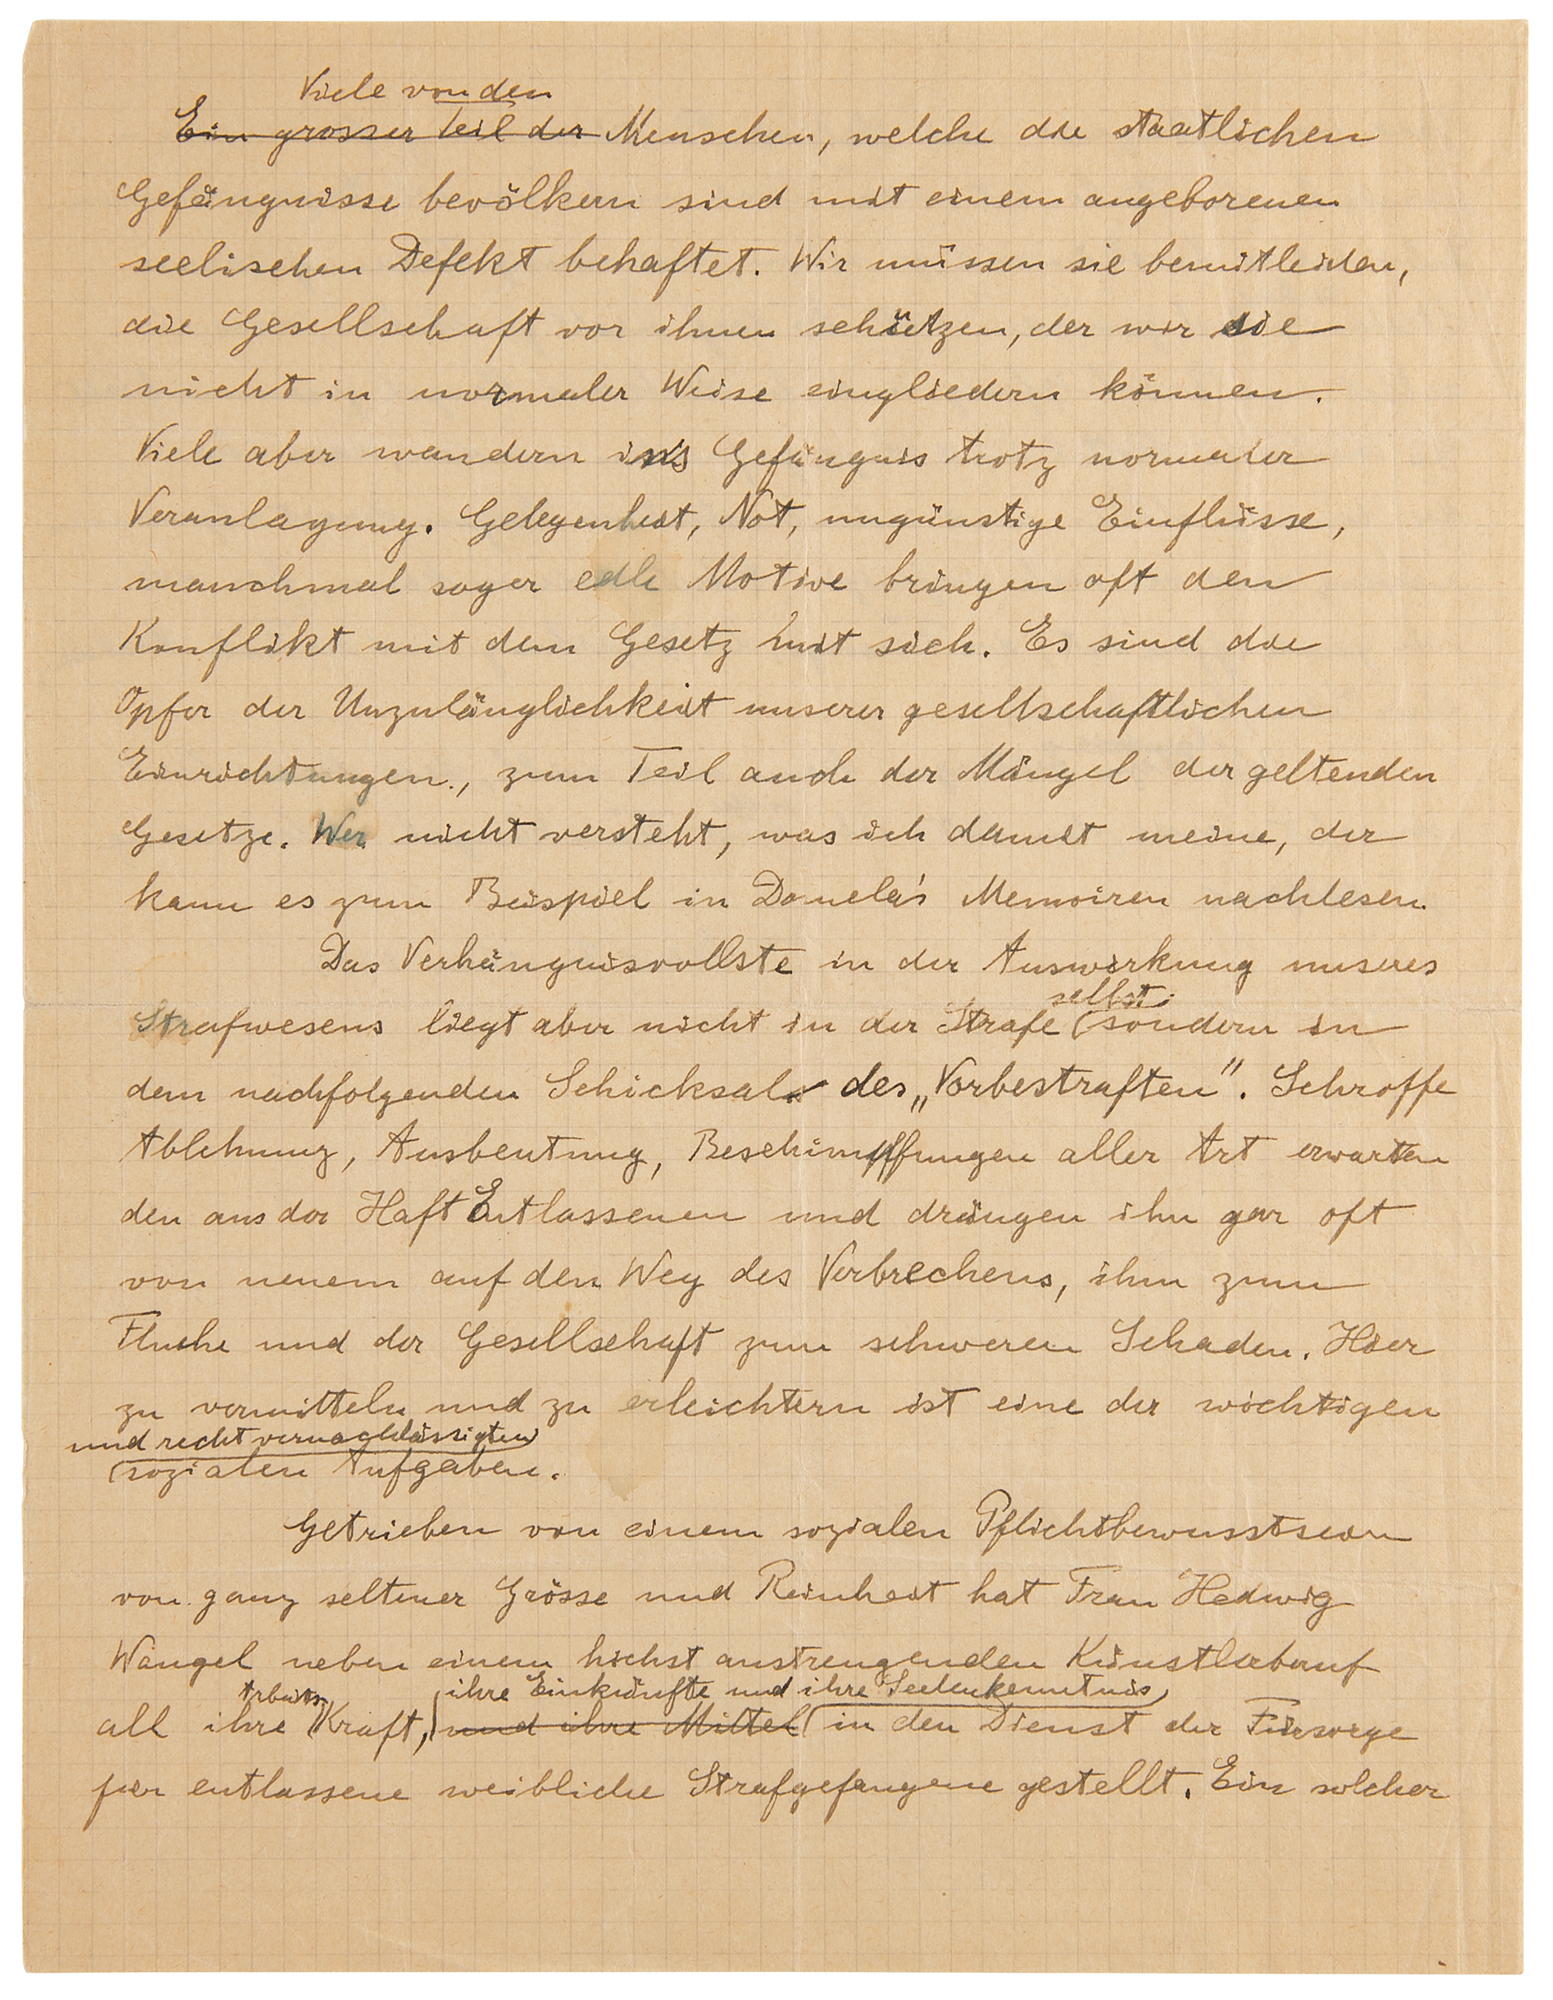 Viele von den
Ein grosser Teil der Menschen, welche die staatlichen
Gefängnisse bevölkern sind mit einem angeborenen
seelischen Defekt behaftet. Wir müssen sie bemitleiden,
die Gesellschaft vor ihnen schützen, der wir sie
nicht in normaler Weise eingliedern können.
Viele aber wandern ins Gefängnis trotz normaler
Veranlagung. Gelegenheit, Not, ungünstige Einflüsse,
manchmal sogar edle Motive bringen oft den
Konflikt mit dem Gesetz mit sich. Es sind die
Opfer der Unzulänglichkeit unserer gesellschaftlichen
Einrichtungen., zum Teil auch der Mängel der geltenden
Gesetze. Wer nicht versteht, was ich damit meine, der
kann es zum Beispiel in Domela's Memoiren nachlesen.
Das Verhängnisvollste in der Auswirkung unseres
selbst.
Strafwesens liegt aber nicht in der Strafe sondern in
dem nachfolgenden Schicksal des „Vorbestraften". Schroffe
Ablehnung, Ausbeutung, Beschimpffungen aller Art erwarten
den aus der Haft Entlassenen und drängen ihn gar oft
von neuem auf den Weg des Verbrechens, ihm zum
Fluche und der Gesellschaft zum schweren Schaden. Hier
zu vermitteln und zu erleichtern ist eine der wichtigen
und recht vernachlässigten
sozialen Aufgaben.
Getrieben von einem sozialen Pflichtbewusstsein
von ganz seltener Grösse und Reinheit hat Frau Hedwig
Wangel neben einem höchst anstrengenden Künstlerberuf
Arbeits- ihre Einkünfte und ihre Seelenkenntnis
all ihre Kraft, und ihre Mittel in den Dienst der Fürsorge
für entlassene weibliche Strafgefangene gestellt. Ein solcher